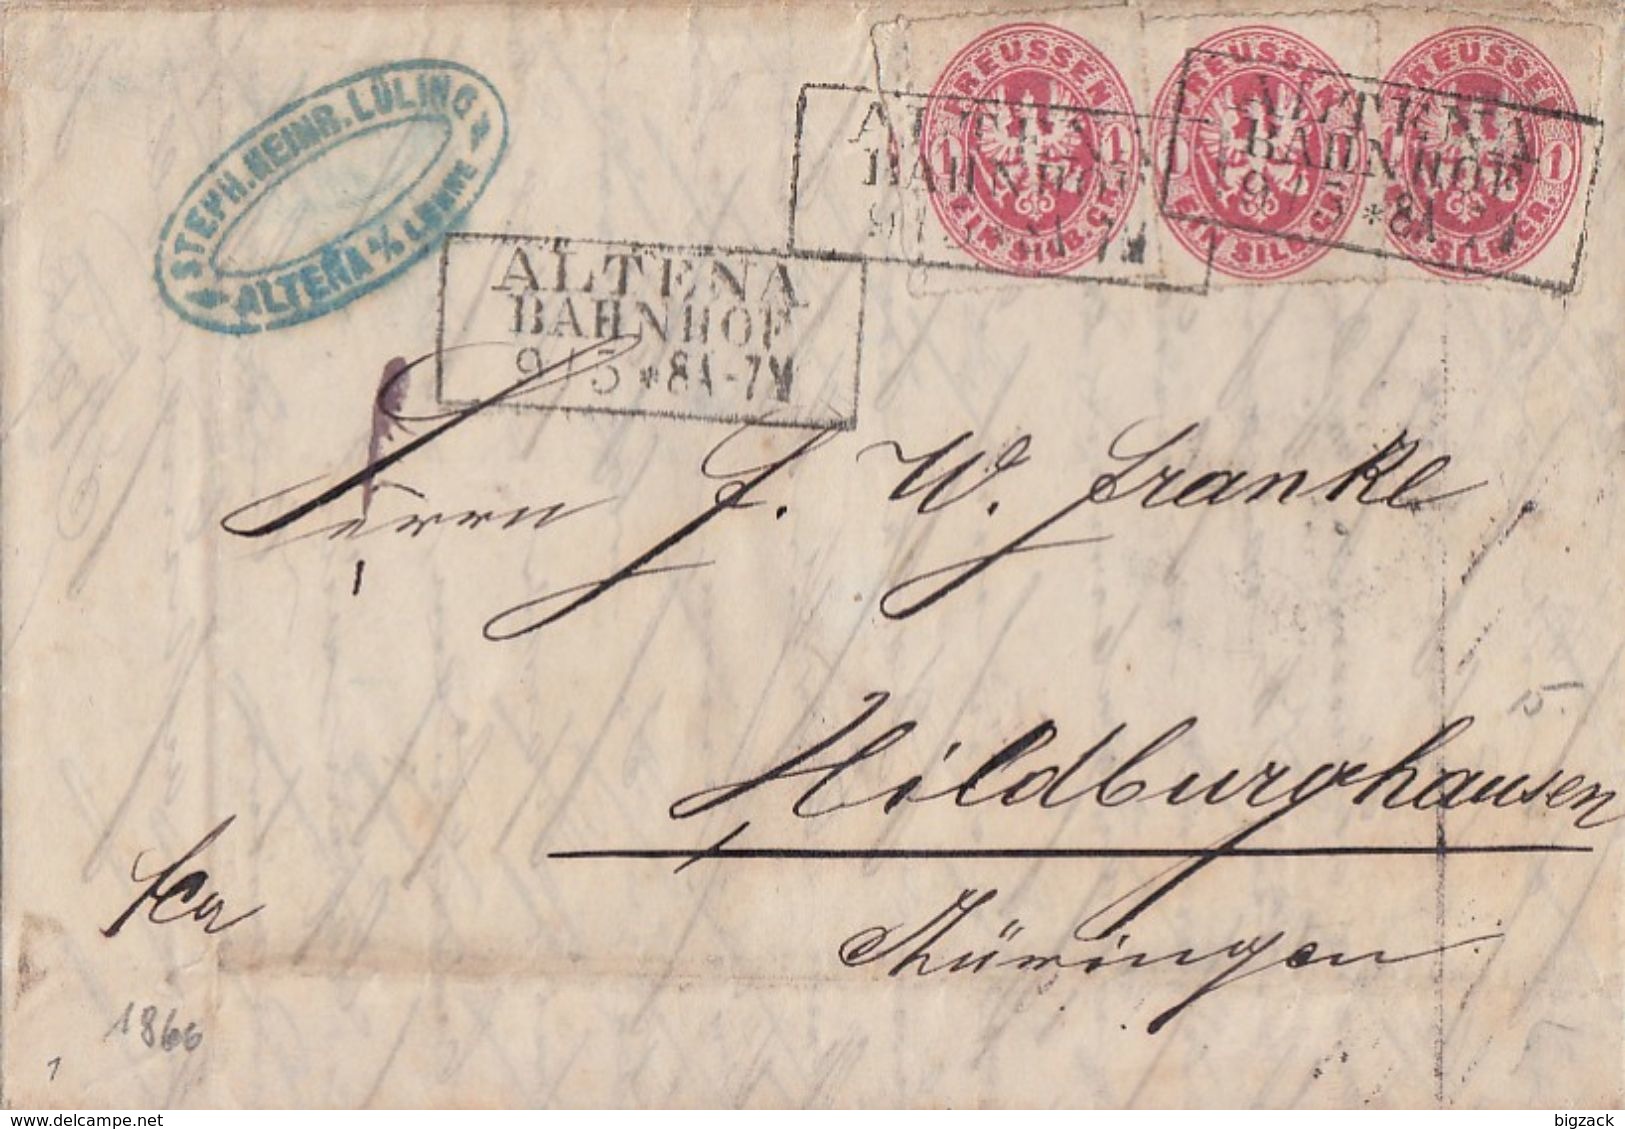 STEPH. HEINR. LÜLING
ALTENA a/d LENNE
PREUSSEN
1 1
EIN SILB. GR.
PREUSSEN
1 1
EIN SILB. GR.
PREUSSEN
1 1
EIN SILB. GR.
ALTENA
BAHNHOF
ALTENA
BAHNHOF
9 5 * 8A-7N
ALTENA
BAHNHOF
9 5 * 8A-7N
Herrn J. W. Franke
Hildburghausen
Thüringen
fco
5.
1866
1
www.delcampe.net
bigzack